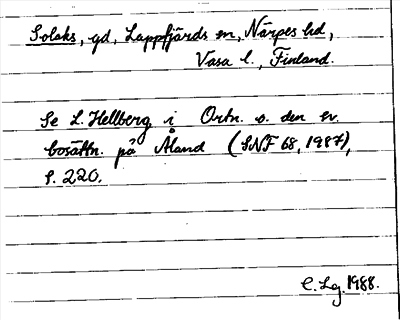 Solaks, gd, Lappfjärds sn, Närpes hd,
Vasa l., Finland.
Se L. Hellberg i Ortn. o. den sv.
bosättn. på Åland (SNF 68, 1987),
s. 220.
C. Lg. 1988.